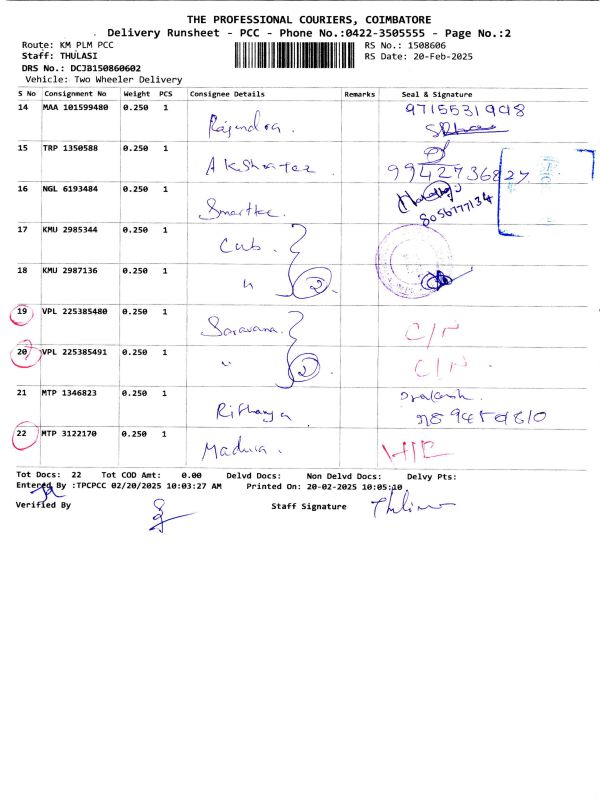 THE PROFESSIONAL COURIERS, COIMBATORE
Delivery Runsheet - PCC - Phone No.:0422-3505555 - Page No.:2
Route: KM PLM PCC RS No.: 1508606
Staff: THULASI RS Date: 20-Feb-2025
DRS No.: DCJB150860602
Vehicle: Two Wheeler Delivery
S No Consignment No Weight PCS Consignee Details Remarks Seal & Signature
14 MAA 101599480 0.250 1 Rajendra. 9715531948
15 TRP 1350588 0.250 1 Akshater 9942736827
16 NGL 6193484 0.250 1 8056777134
17 KMU 2985344 0.250 1 Cub.
18 KMU 2987136 0.250 1 " 2
19 VPL 225385480 0.250 1 Saravana. C/N
20 VPL 225385491 0.250 1 " 2 C/N.
21 MTP 1346823 0.250 1 Rithanya Prakash.
22 MTP 3122170 0.250 1 Madura.
Tot Docs: 22 Tot COD Amt: 0.00 Delvd Docs: Non Delvd Docs: Delvy Pts:
Entered By :TPCPCC 02/20/2025 10:03:27 AM Printed On: 20-02-2025 10:05:10
Verified By Staff Signature